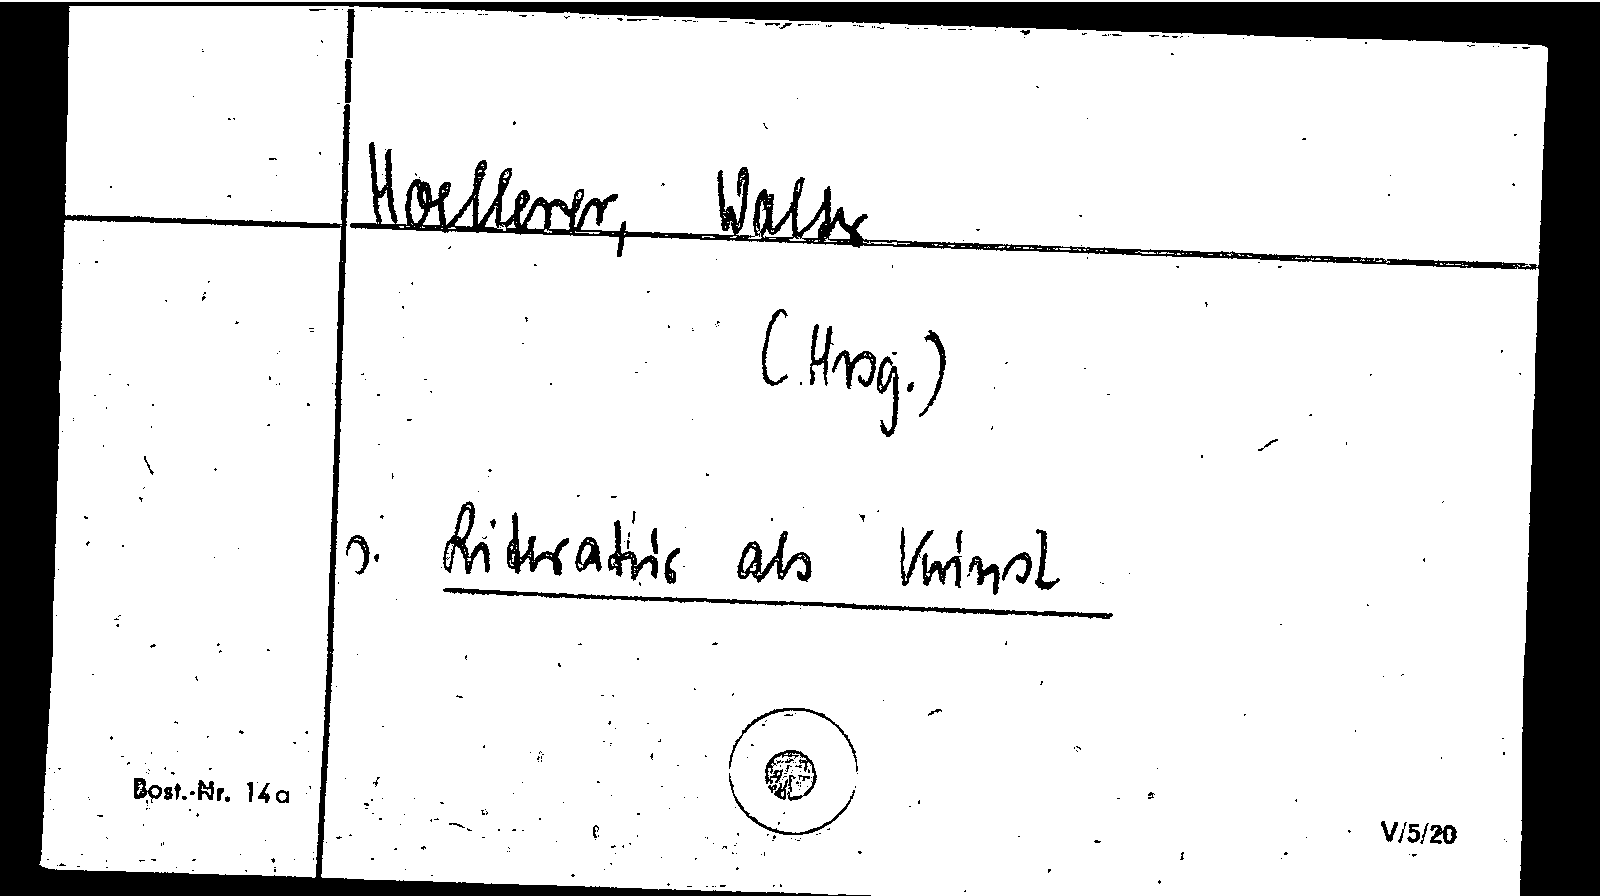 Hoellerer, Walter
(Hrsg.)
s. Literatur als Kunst
Best.-Nr. 14a
V/5/20